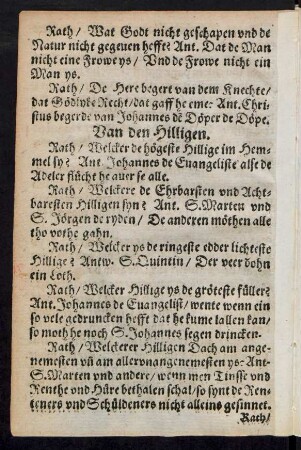 Rath/ Wat Godt nicht geschapen vnd de
Natur nicht gegeuen hefft? Ant. Dat de Man
nicht eine Frowe ys/ Vnd de Frowe nicht ein
Man ys.
Rath/ De Here begert van dem Knechte/
dat Gödtlyke Recht/ dat gaff he eme: Ant. Chri-
stus begerde van Johannes dē Döper de Döpe.
Van den Hilligen.
Rath/ Welcker de högeste Hillige im Hem-
mel sy? Ant. Johannes de Euangeliste alse de
Adeler flücht he auer se alle.
Rath/ Welckere de Ehrbarsten vnd Acht-
baresten Hilligen syn? Ant. S. Marten vnd
S. Jörgen de ryden/ De anderen möthen alle
tho vothe gahn.
Rath/ Welcker ys de ringeste edder lichteste
Hillige? Antw. S. Quintin/ Der veer dohn
ein Loth.
Rath/ Welcker Hillige ys de gröteste füller?
Ant. Johannes de Euangelist/ wente wenn ein
so vele gedruncken hefft dat he kume lallen kan/
so moth he noch S. Johannes segen drincken.
Rath/ Welckerer Hilligen Dach am ange-
nemesten vn̄ am allervnangenemesten ys? Ant-
S. Marten vnd andere/ wenn men Tinsse vnd
Renthe vnd Hüre bethalen schal/ so synt de Ren-
teners vnd Schüldeners nicht alleins gesinnet.
Rath/